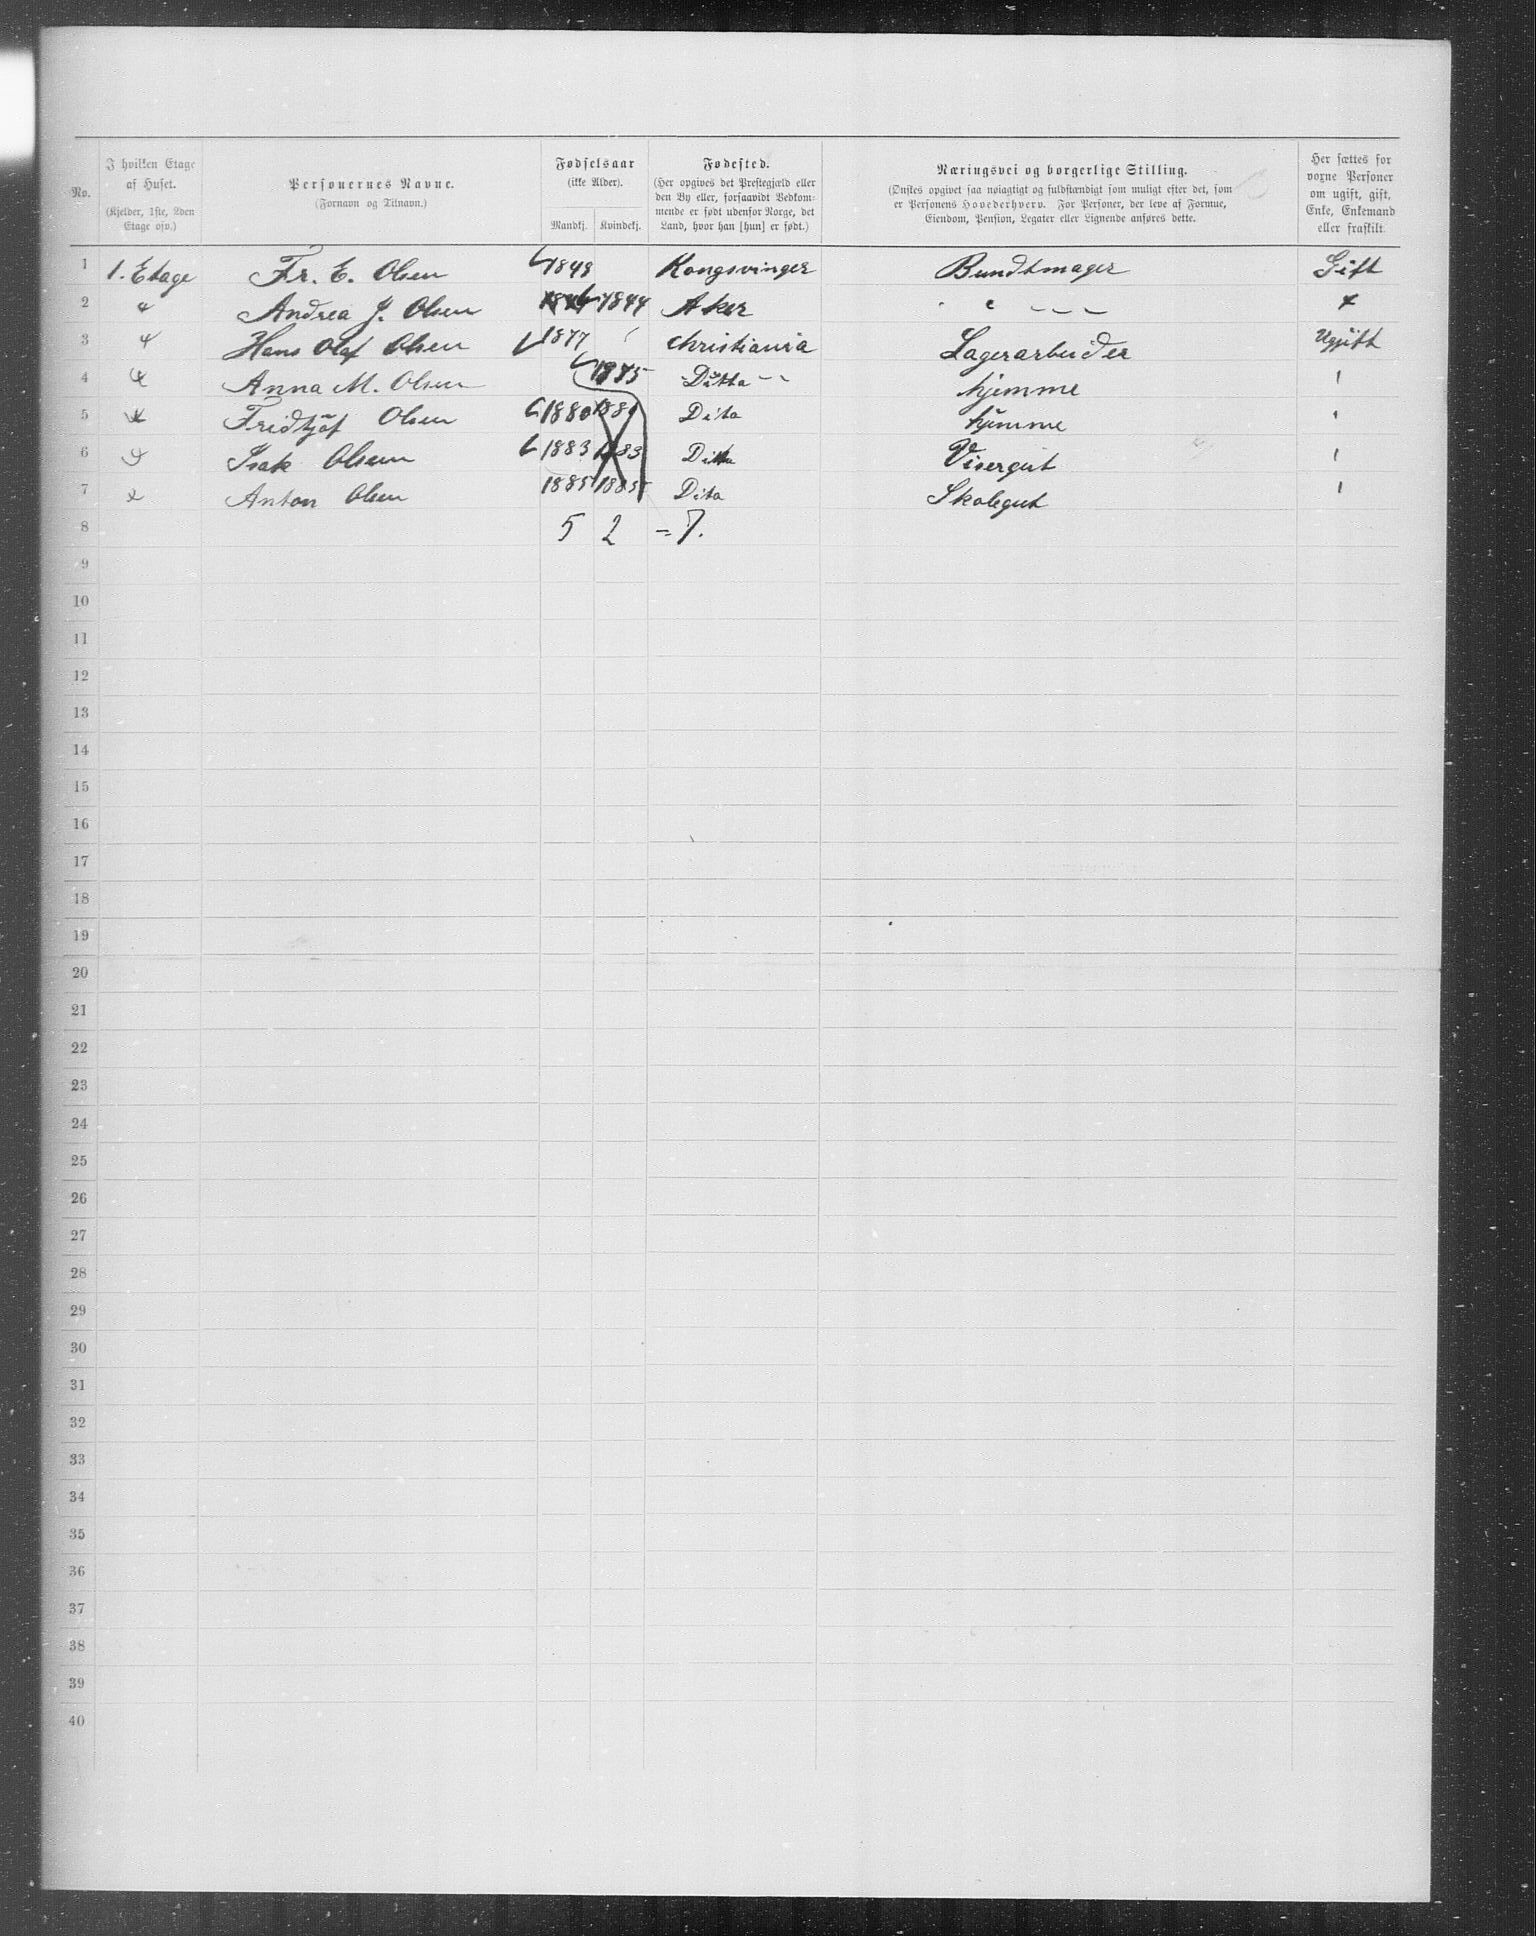 No.
I hvilken Etage af Huset.
(Kjelder, 1ste, 2den Etage osv.)
Personernes Navne.
(Fornavn og Tilnavn.)
Fødselsaar
(ikke Alder).
Mandkj. Kvindekj.
Fødested.
(Her opgives det Prestegjæld eller den By eller, forsaavidt Vedkommende er født udenfor Norge, det Land, hvor han [hun] er født.)
Næringsvei og borgerlige Stilling.
(Ønskes opgivet saa nøiagtigt og fuldstændigt som muligt efter det, som er Personens Hovederhverv. For Personer, der leve af Formue, Eiendom, Pension, Legater eller Lignende anføres dette.)
Her sættes for voxne Personer om ugift, gift, Enke, Enkemand eller fraskilt.
1 1. Etage Fr. E. Olsen 1848 Kongsvinger Bundtmager Gift
2 " Andrea J. Olsen 1844 Aker " - - -
3 " Hans Olaf Olsen 1877 Christiania Lagerarbeider Ugjift
4 " Anna M. Olsen 1875 Ditto hjemme "
5 " Fridtjöf Olsen 1880 1880 Dito hjemme "
6 " Isak Olsen 1883 1883 Ditto Visergut "
7 " Anton Olsen 1885 1885 Dito Skolegut "
8 5 2 = 7.
9
10
11
12
13
14
15
16
17
18
19
20
21
22
23
24
25
26
27
28
29
30
31
32
33
34
35
36
37
38
39
40